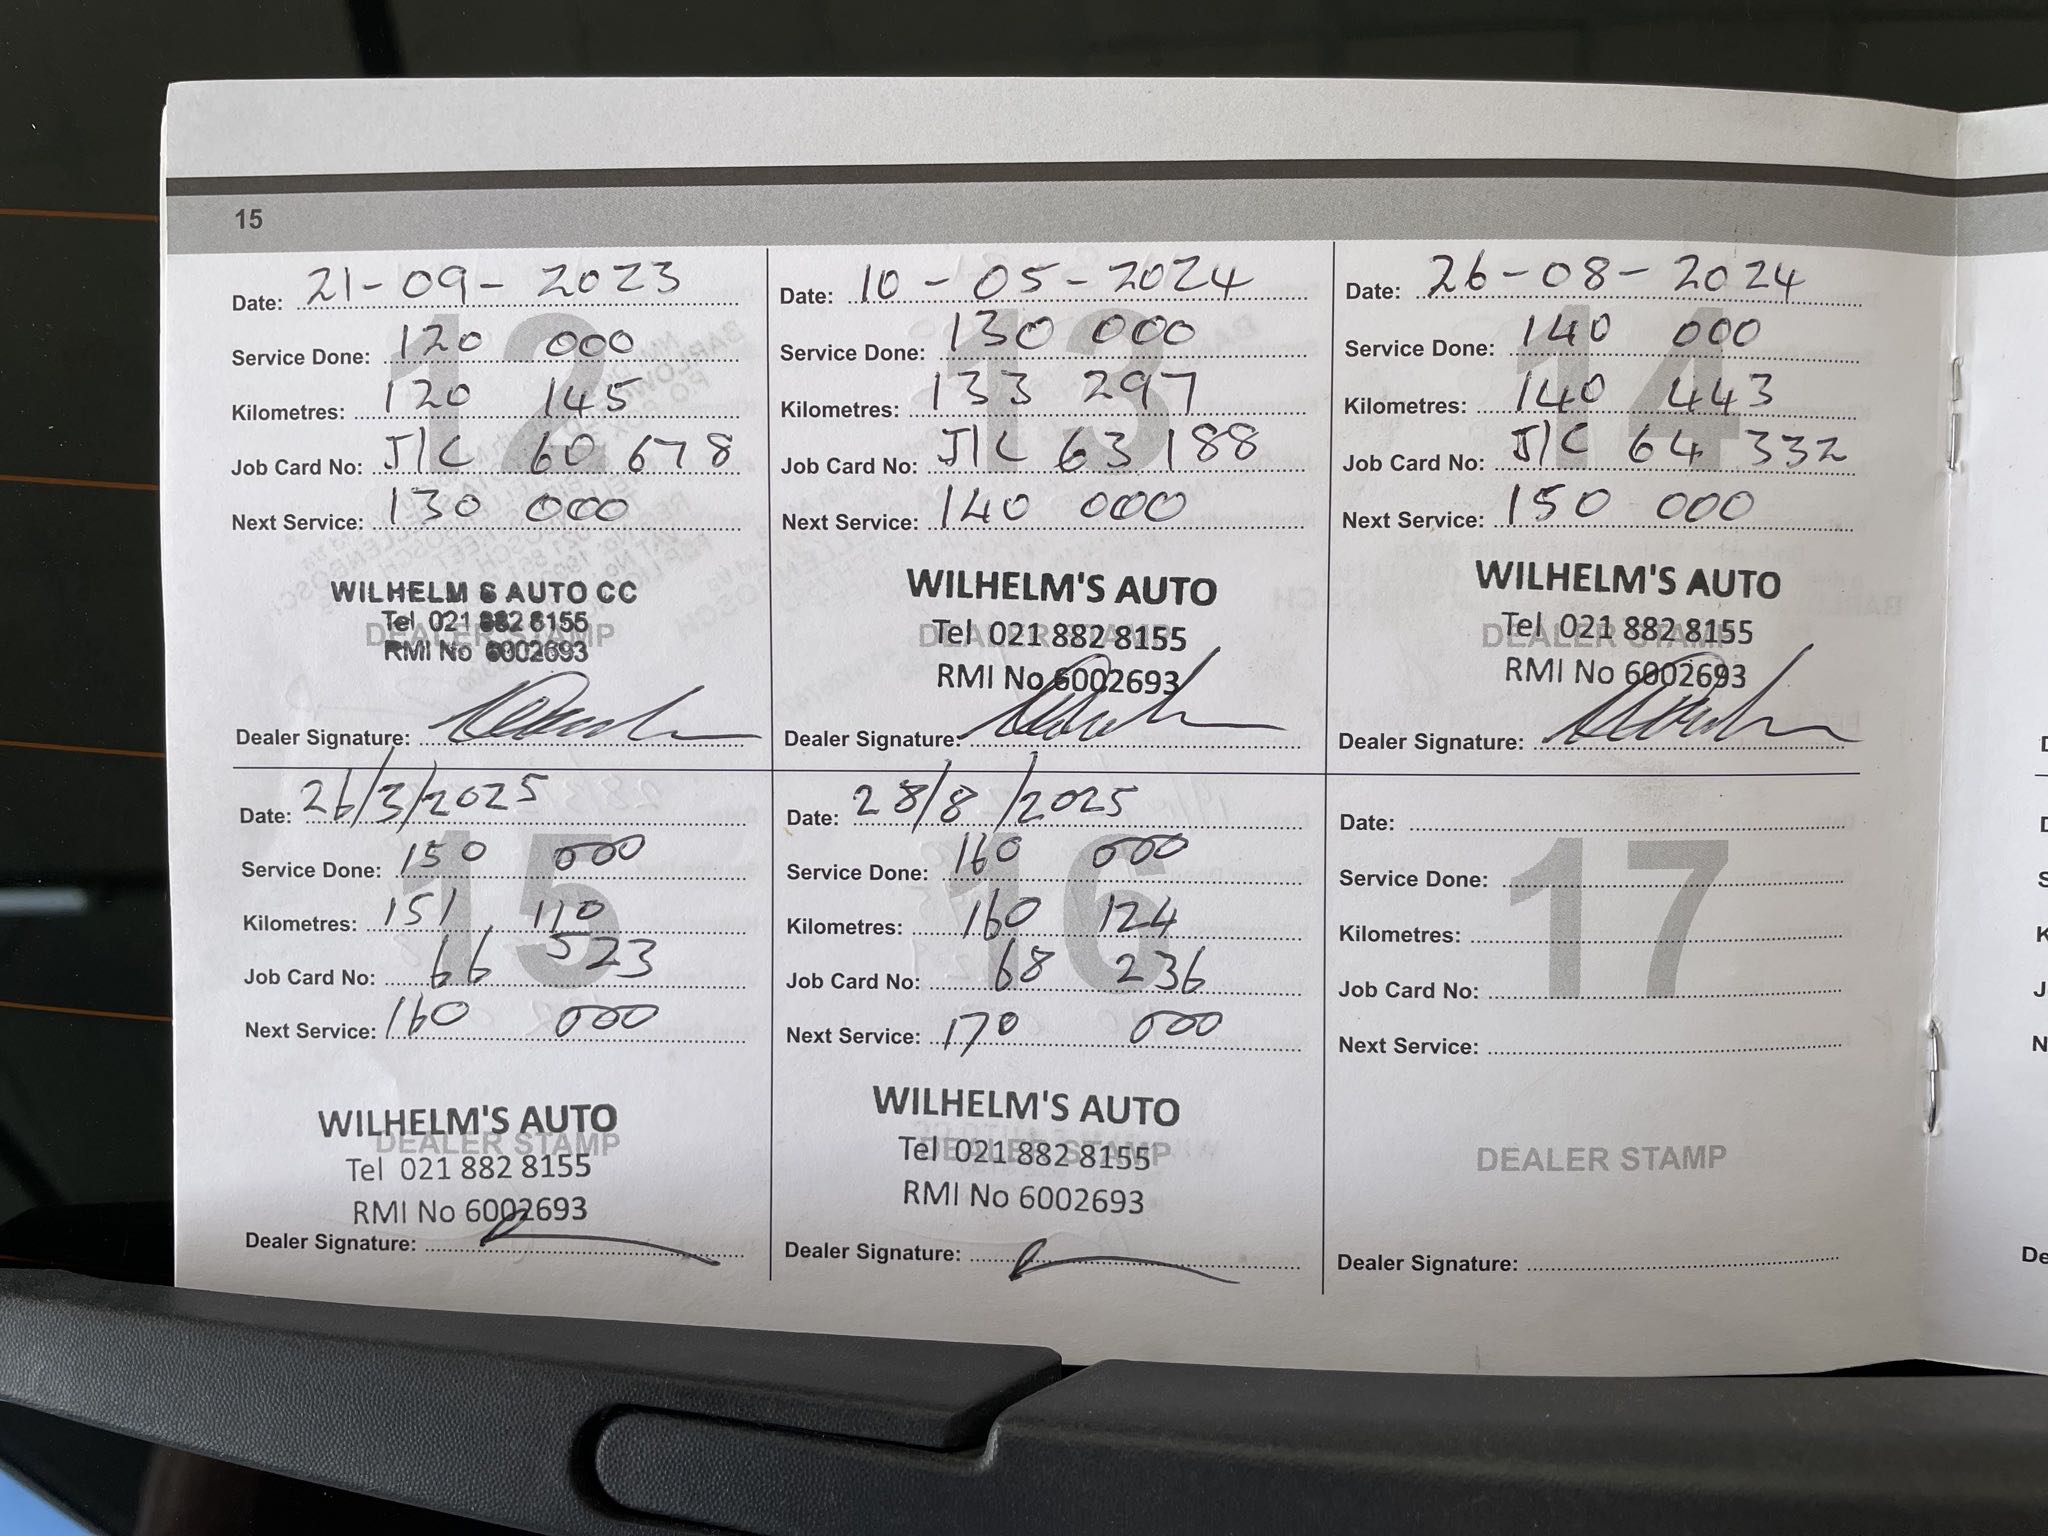 15
Date: 21-09-2023
Service Done: 120 000
Kilometres: 120 145
Job Card No: J/C 60 678
Next Service: 130 000
WILHELM S AUTO CC
Tel 021 882 8155
DEALER STAMP
RMI No 6002693
Dealer Signature:
12
Date: 10-05-2024
Service Done: 130 000
Kilometres: 133 297
Job Card No: J/C 63 188
Next Service: 140 000
WILHELM'S AUTO
Tel 021 882 8155
DEALER STAMP
RMI No 6002693
Dealer Signature:
13
Date: 26-08-2024
Service Done: 140 000
Kilometres: 140 443
Job Card No: J/C 64 332
Next Service: 150 000
WILHELM'S AUTO
Tel 021 882 8155
DEALER STAMP
RMI No 6002693
Dealer Signature:
14
Date: 26/3/2025
Service Done: 150 000
Kilometres: 151 110
Job Card No: 66 523
Next Service: 160 000
WILHELM'S AUTO
DEALER STAMP
Tel 021 882 8155
RMI No 6002693
Dealer Signature:
15
Date: 28/8/2025
Service Done: 160 000
Kilometres: 160 124
Job Card No: 68 236
Next Service: 170 000
WILHELM'S AUTO
Tel 021 882 8155
DEALER STAMP
RMI No 6002693
Dealer Signature:
16
Date:
Service Done:
Kilometres:
Job Card No:
Next Service:
DEALER STAMP
Dealer Signature:
17